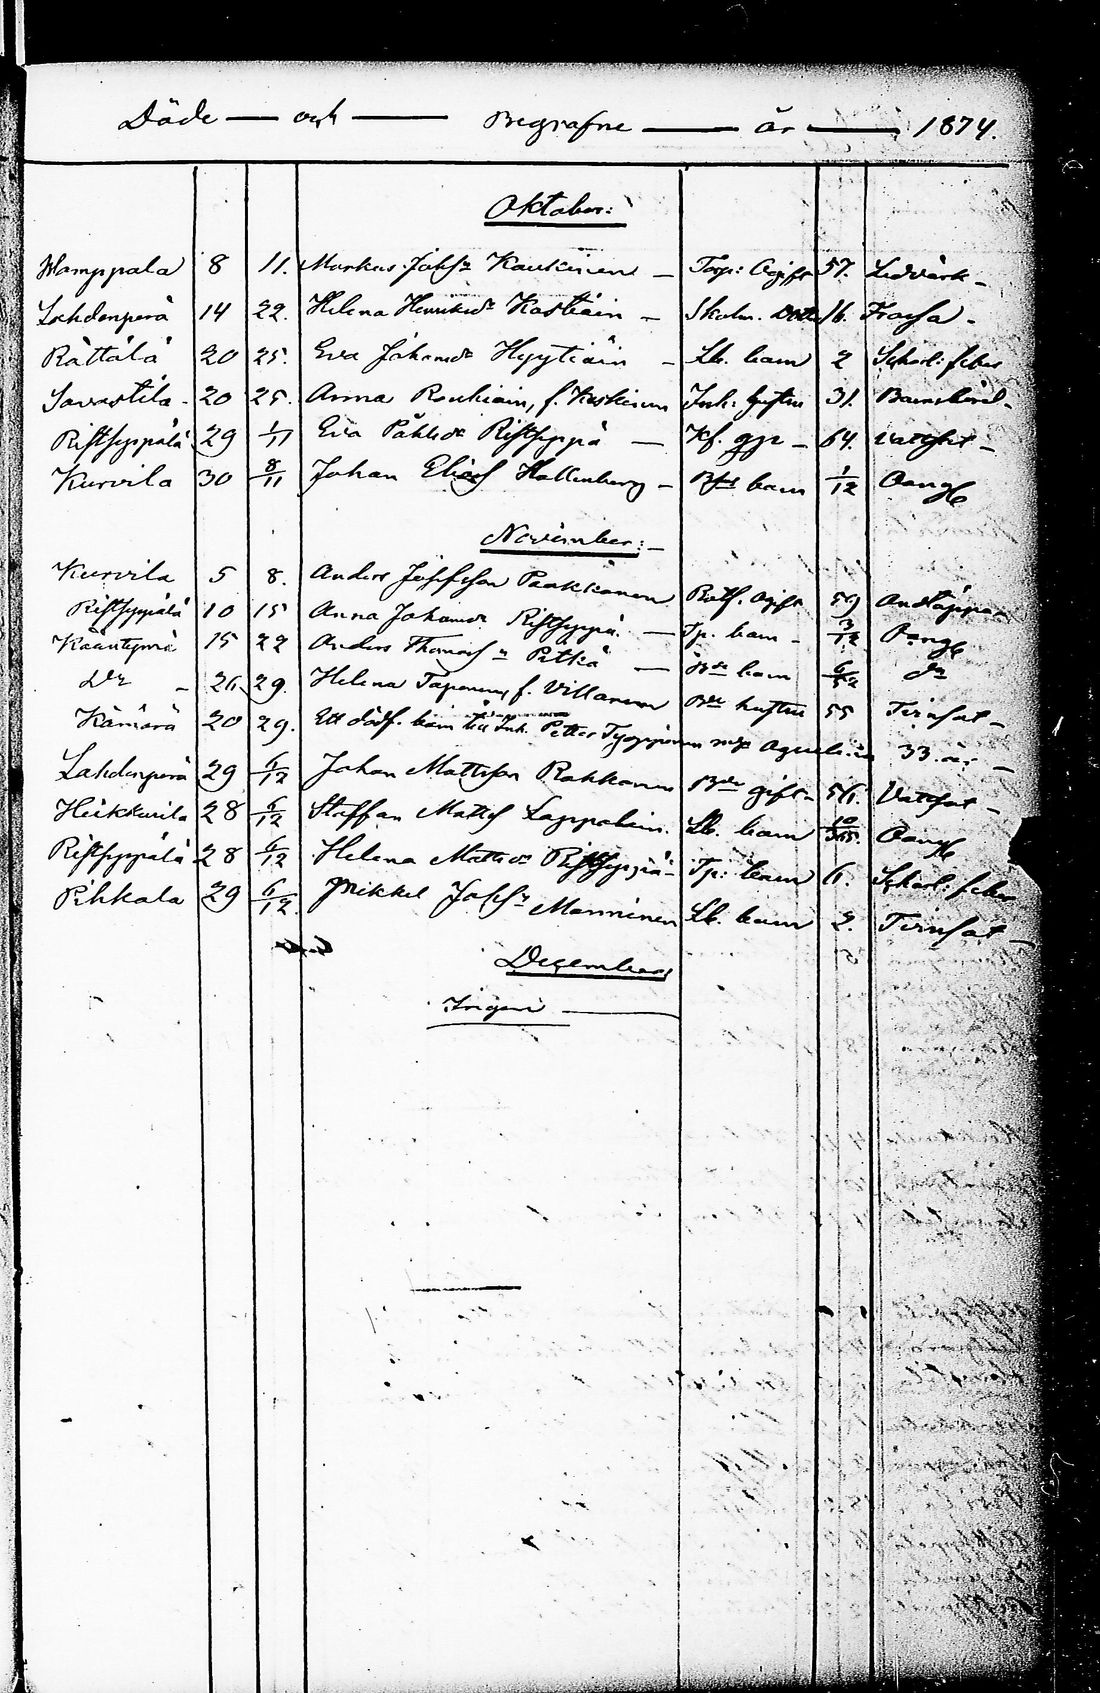 Döde — och — Begrafne — år — 1874.
Oktober:
Hamppala 8 11. Markus Josefsn Kaukinen — Torp: Ogift 57. Ledvärk -
Lahdenperä 14 22. Helena Henriksdr Kostiain — 16. Frossa -
Rättälä 20 25. Eva Johansdr Hyytiäin - Lb. barn 2 Scharl: feber
Savastila - 20 25. Anna Roukiain, f. Koskinen Inh: hustru 31. Barnsbörd -
Ristseppälä 29 1/11 Eva Påhlsdr Ristseppä — 64. Vattsot -
Kurvila 30 8/11 Johan Eliass Hallenberg - barn 1/12 Oang
November: -
Kurvila 5 8. Anders Josefsson Paakkonen Ogift 59 Andtäppa
Ristseppälä 10 15 Anna Johansdr Ristseppä. — Tp. barn - 3/12 Oang
Kääntymä 15 22 Anders Thomass n Pitkä — barn Do
Do - 26 29. Helena Taponen, f. Villanen hustru 55 Tvinsot -
Kämärä 20 29. Ett dödf. barn till Inh. Petter Tyyppönen 33. år -
Lahdenperä 29 6/12 Johan Mattsson Rahkonen gift - 56. Vattsot -
Heikkurila 28 6/12 Staffan Matts Lappalain. Lb. barn 10/365. Oang
Ristseppälä 28 6/12 Helena Mattsdr Ristseppä - Tp: barn 6. Scharl: feber
Pihkala 29 6/12. Mikkel Josefsn Manninen Lb. barn 2. Tvinsot -
December
Ingen —